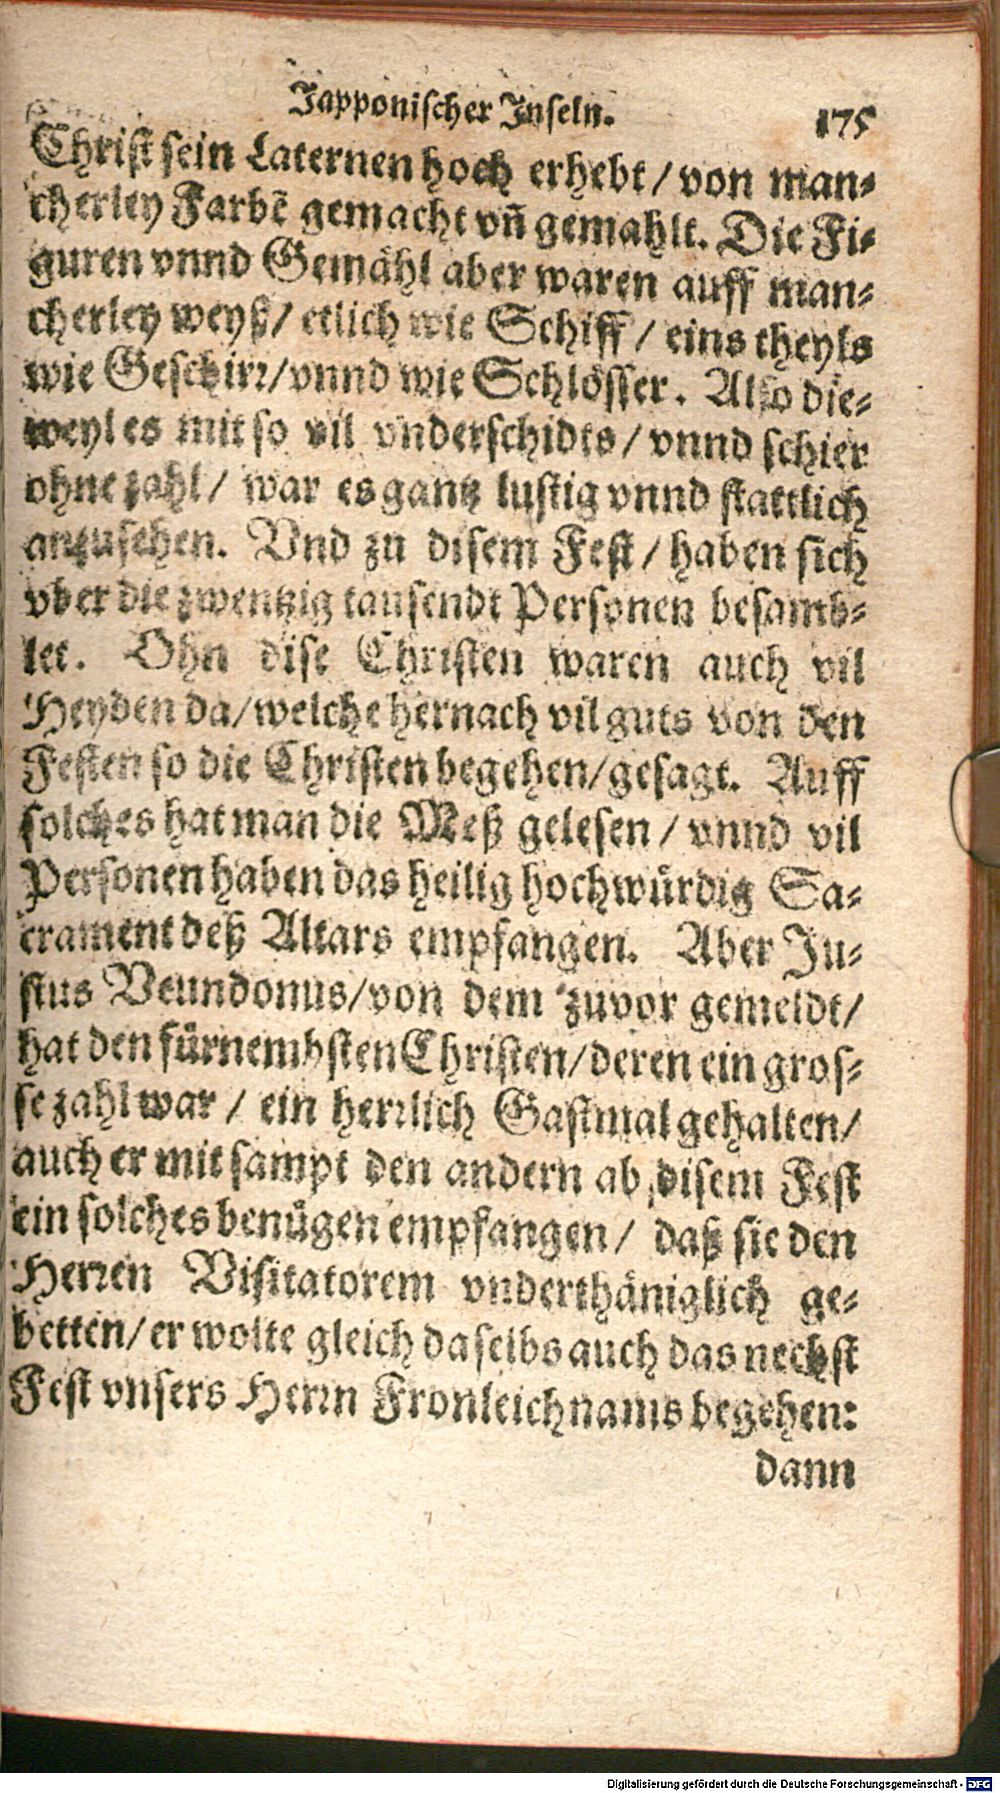 Japponischer Inseln. 175
Christ sein Laternen hoch erhebt / von man-
cherley Farbē gemacht vn̄ gemahlt. Die Fi-
guren vnnd Gemähl aber waren auff man-
cherley weyß / etlich wie Schiff / eins theyls
wie Geschirr / vnnd wie Schlösser. Also die-
weyl es mit so vil vnderschidts / vnnd schier
ohne zahl / war es gantz lustig vnnd stattlich
anzusehen. Vnd zu disem Fest / haben sich
vber die zwentzig tausendt Personen besamb-
let. Ohn dise Christen waren auch vil
Heyden da / welche hernach vil guts von den
Festen so die Christen begehen / gesagt. Auff
solches hat man die Meß gelesen / vnnd vil
Personen haben das heilig hochwürdig Sa-
crament deß Altars empfangen. Aber Ju-
stus Veundonus / von dem zuvor gemeldt /
hat den fürnembsten Christen / deren ein gros-
se zahl war / ein herrlich Gastmal gehalten /
auch er mit sampt den andern ab disem Fest
ein solches benügen empfangen / daß sie den
Herren Visitatorem vnderthäniglich ge-
betten / er wolte gleich daselbs auch das nechst
Fest vnsers Herrn Fronleichnams begehen:
dann
Digitalisierung gefördert durch die Deutsche Forschungsgemeinschaft - DFG